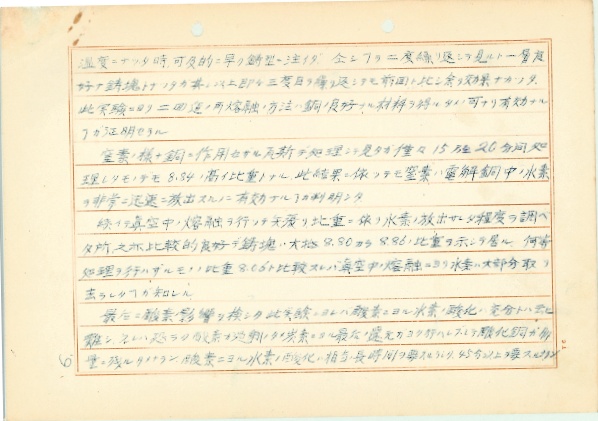 温度ニナツタ時、可及的ニ早ク鋳型ヘ注イダ。今一ツヲ二度繰リ返シテ見ルト一層良
好ナ鋳塊トナツタガ其レ以上即チ三度目ヲ繰リ返シテモ前回ト比シ余リ効果ナカツタ。
此実験ニヨリ二回迄ノ再熔融ノ方法ハ銅ノ良好ナル材料ヲ得ルタメニ可ナリ有効ナル
ヿガ証明セラル
窒素ノ様ナ銅ニ作用セザル瓦斯デ処理シテ見タガ僅々15乃至20分間処
理シタモノデモ8.54ノ高イ比重トナル。此結果ニ依ツテモ窒素ハ電解銅中ノ水素
ヲ非常ニ迅速ニ放出スルニ有効ナルヿガ判明シタ
続イテ真空中ノ熔融ヲ行ツテ矢張リ比重ニ依リ水素ノ放出サレタ程度ヲ調ベ
タ所、之亦比較的良好ナ鋳塊ハ大抵8.80カラ8.86ノ比重ヲ示シテ居ル。何等
処理ヲ行ハザルモノノ比重8.06ト比較スレバ真空中ノ熔融ニヨリ水素ハ大部分取リ
去ラレタヿガ知レル
最后ニ酸素ノ影響ヲ検シタ此実験ニヨレバ酸素ニヨル水素ノ酸化ハ充分トハ云ヒ
難シ、
酸素ニヨル水素ノ酸化ハ相当長時間ヲ要スル 45分以上ヲ要スル
6